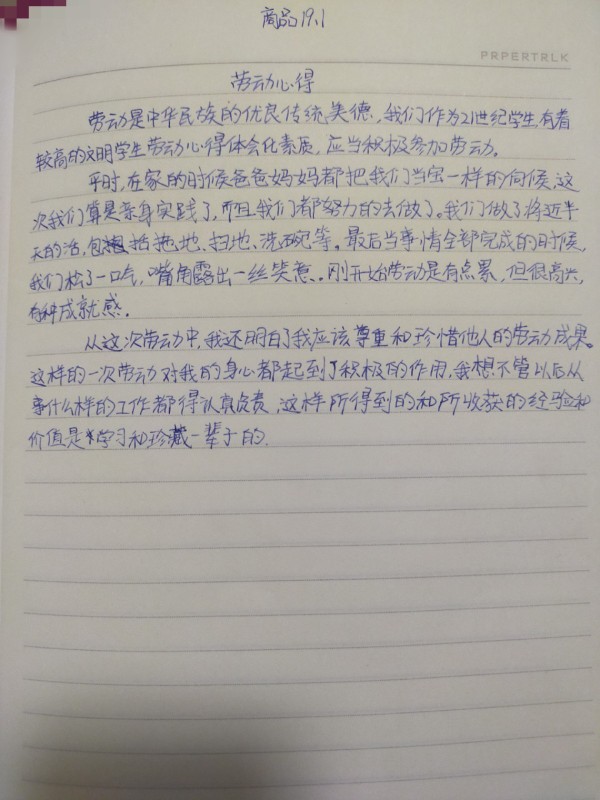 商品19.1
PRPERTRLK
劳动心得
劳动是中华民族的优良传统美德,我们作为21世纪学生,有着
较高的文明学生劳动心得体会化素质,应当积极参加劳动。
平时,在家的时候爸爸妈妈都把我们当宝一样的伺候,这
次我们算是亲身实践了,而且我们都努力的去做了。我们做了将近半
天的活,包括拖地、扫地、洗碗等。最后当事情全部完成的时候,
我们松了一口气,嘴角露出一丝笑意。刚开始劳动是有点累,但很高兴,
有种成就感。
从这次劳动中,我还明白了我应该尊重和珍惜他人的劳动成果。
这样的一次劳动对我的身心都起到了积极的作用,我想不管以后从
事什么样的工作都得认真负责,这样所得到的和所收获的经验和
价值是学习和珍藏一辈子的.